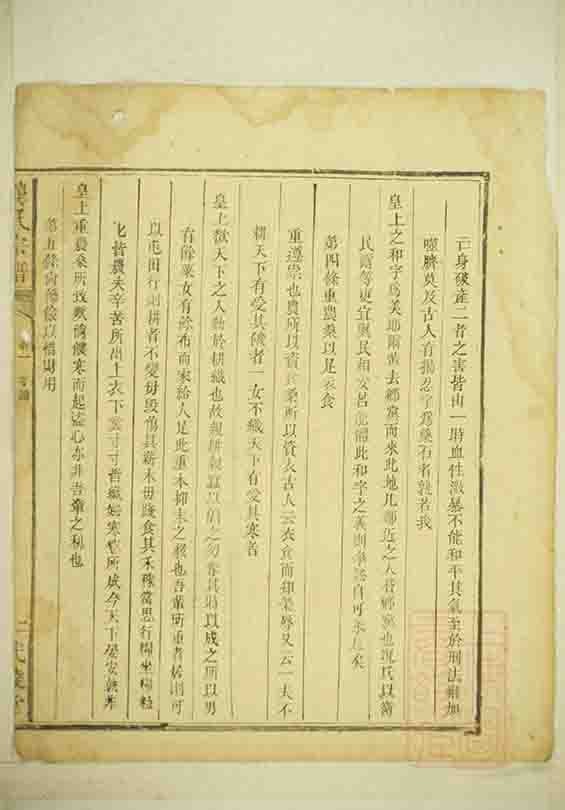 亡身破產二者之害皆由一時血性激暴不能和平其氣至於刑法難加
噬臍莫及古人有揭忍字為藥石者孰若我
皇上之和字為美耶爾黨去鄉黨而來此地凡鄰近之人皆鄉黨也況兵以衛
民需 更宜與民相安 體此和字之義則爭訟自可永息矣
第四條重農桑以足衣食
重 也農所以資食桑所以資衣古人云衣食而知榮辱又云一夫不
耕天下有受其饑者一女不織天下有受其寒者
皇上欲天下之人勤於耕織也故親耕親蠶以倡之勿奪其時以成之所以男
有餘粟女有餘布而家給人足此重本抑末之務也吾輩所重者居則可
以屯田行則耕者不變毋毀傷其薪木毋踐食其禾稼當思行糧坐糧粒
粒皆農夫辛苦所出上衣下裳寸寸皆織婦寒 所成今天下晏安 非
皇上重農桑所致歟 饑寒而起盜心亦非吾輩之利也
第五條尚節儉以惜財用
氏宗譜
卷一